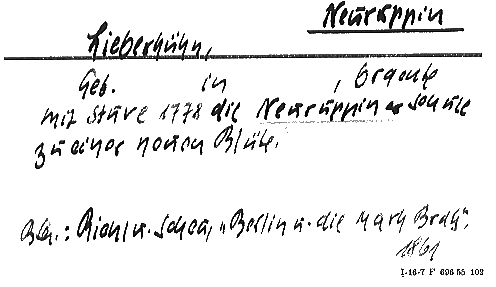 Neuruppin
Lieberkühn,
Geb. in , brachte
mit Stuve 1778 die Neuruppiner Schule
zu einer neuen Blüte.
Riehl u. Scheu, „Berlin u. die Mark Brdbg",
1861
I-16-7 F 696 55 102